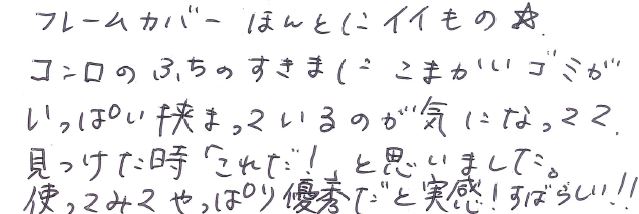 フレームカバー ほんとにイイもの☆
コンロのふちのすきまに こまかいゴミが
いっぱい挟まっているのが気になってて、
見つけた時「これだ!」と思いました。
使ってみてやっぱり優秀だと実感!すばらしい!!